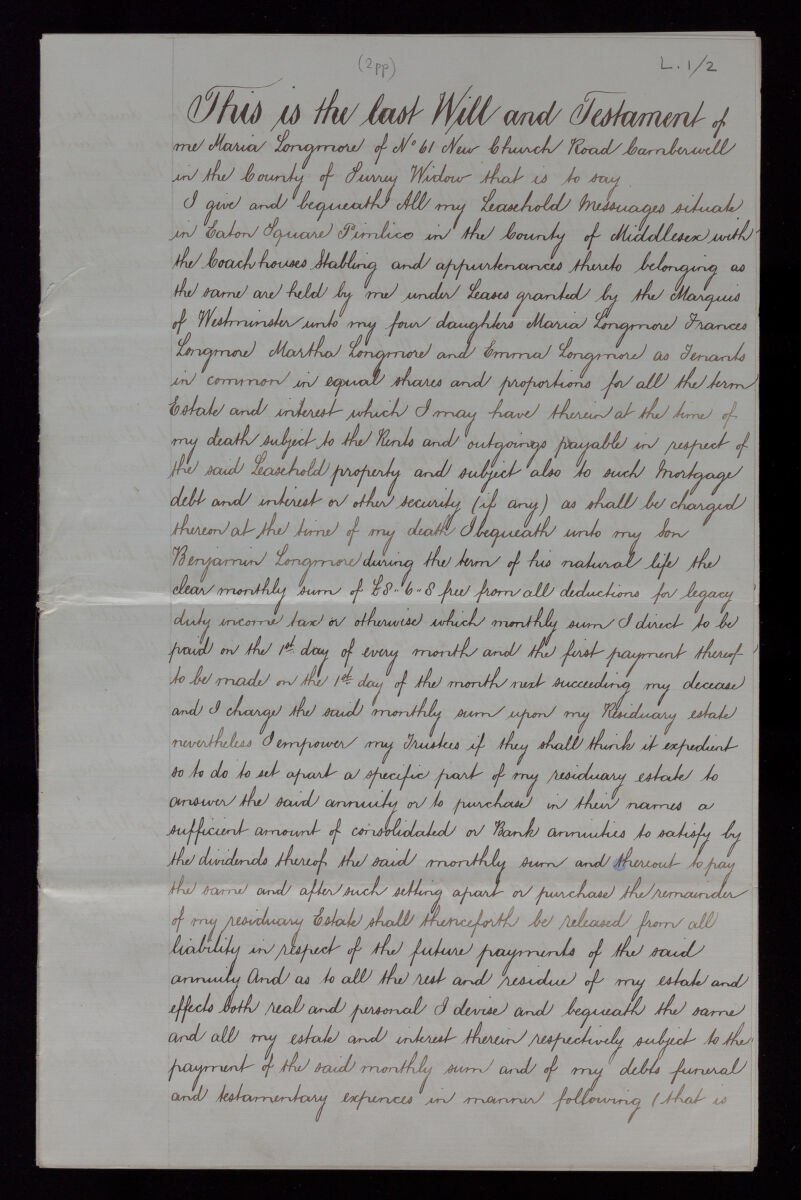 (2pp)
L.1/2
This is the last Will and Testament of
me Maria Longmore of No 61 New Church Road Camberwell
in the County of Surrey Widow that is to say
I give and bequeath All my Leasehold Messuages situate
in Eaton Square Pimlico in the County of Middlesex with
the Coach houses Stabling and appurtenances thereto belonging as
the same are held by me under Leases granted by the Marquis
of Westminster unto my four daughters Maria Longmore Frances
Longmore Martha Longmore and Emma Longmore as Tenants
in common in equal shares and proportions for all the term
Estate and interest which I may have therein at the time of
my death subject to the Rents and outgoings payable in respect of
the said Leasehold property and subject also to such Mortgage
debt and interest or other security (if any) as shall be charged
thereon at the time of my death I bequeath unto my Son
Benjamin Longmore during the term of his natural life the
clear monthly sum of £8"6"8 free from all deductions for legacy
duty income tax or otherwise which monthly sum I direct to be
paid on the 1st day of every month and the first payment thereof
to be made on the 1st day of the month next succeeding my decease
and I charge the said monthly sum upon my Residuary estate
nevertheless I empower my Trustees if they shall think it expedient
so to do to set apart a specific part of my residuary estate to
answer the said annuity or to purchase in their names a
sufficient amount of consolidated or Bank annuities to satisfy by
the dividends thereof the said monthly sum and thereout to pay
the same and after such setting apart or purchase the remainder
of my residuary Estate shall thenceforth be released from all
liability in respect of the future payments of the said
annuity And as to all the rest and residue of my estate and
effects both real and personal I devise and bequeath the same
and all my estate and interest therein respectively subject to the
payment of the said monthly sum and of my debts funeral
and testamentary expences in manner following (that is